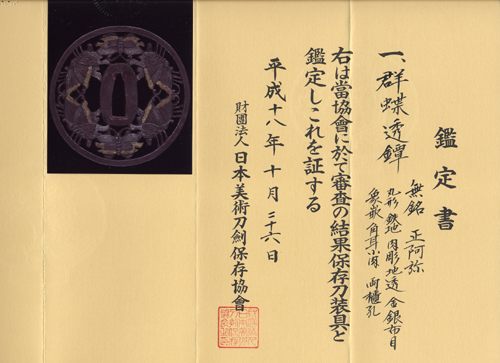 鑑定書
一、群蝶透鐔
無銘 正阿弥
丸形 鉄地 肉彫地透 金銀布目
象嵌 角耳小肉 両櫃孔
右は當協會に於て審査の結果保存刀装具と
鑑定しこれを証する
平成十八年十月二十六日
財團法人 日本美術刀劍保存協會